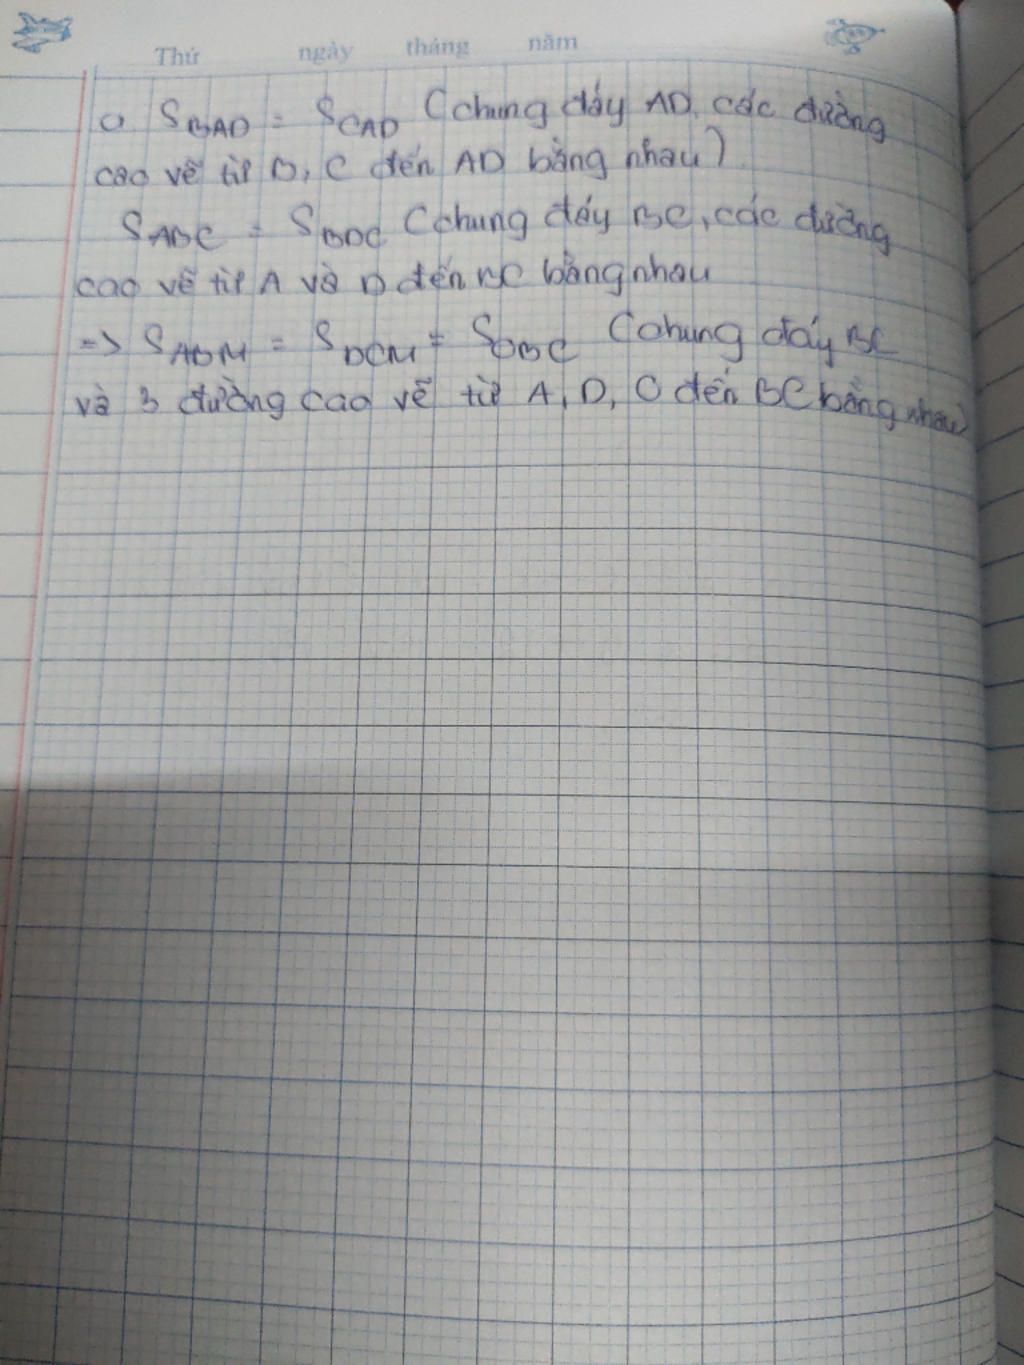 Thứ ngày tháng năm
a S_BAD = S_CAD (chung đáy AD, các đường
cao vẽ từ D, C đến AD bằng nhau)
S_ABC = S_BDC (chung đáy BC, các đường
cao vẽ từ A và D đến BC bằng nhau
=> S_ADM = S_DCM = S_OBC (chung đáy BC
và 3 đường cao vẽ từ A, D, O đến BC bằng nhau)